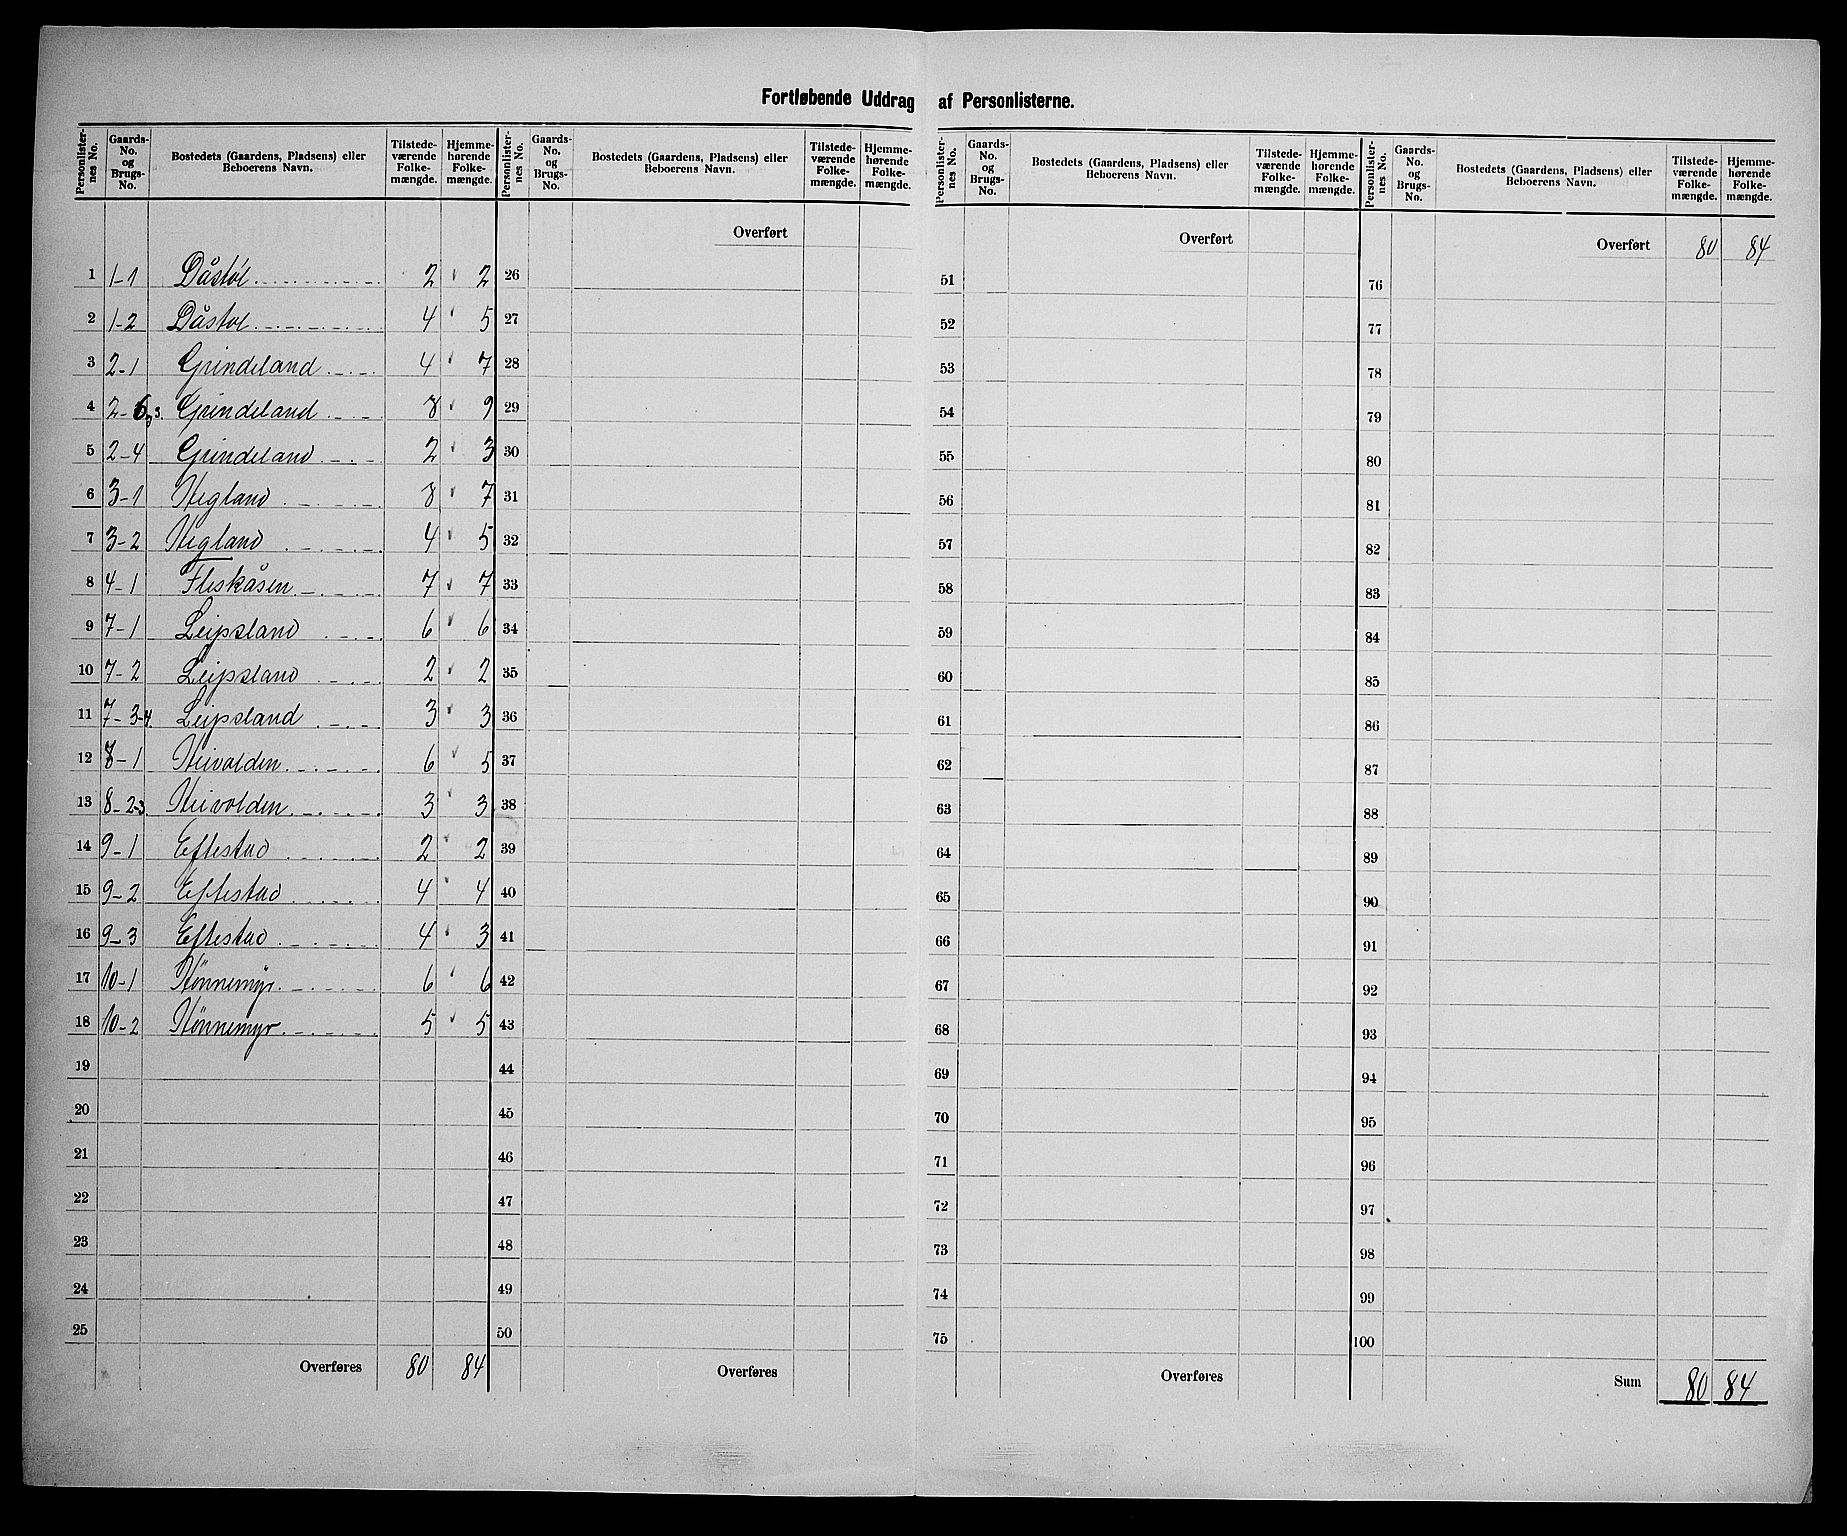 Fortløbende Uddrag af Personlisterne.
Personlister-nes No. | Gaards-No. og Brugs-No. | Bostedets (Gaardens, Pladsens) eller Beboerens Navn. | Tilstede-værende Folke-mængde. | Hjemme-hørende Folke-mængde.
1 1-1 Dåstøl 2 2
2 1-2 Dåstøl 4 5
3 2-1 Grindeland 4 7
4 2-6 og 3. Grindeland 8 9
5 2-4 Grindeland 2 3
6 3-1 Hegland 8 7
7 3-2 Hegland 4 5
8 4-1 Fleskåsen 7 7
9 7-1 Leipsland 6 6
10 7-2 Leipsland 2 2
11 7-3-4. Leipsland 3 3
12 8-1 Heivolden 6 5
13 8-2-3. Heivolden 3 3
14 9-1 Eftestad 2 2
15 9-2 Eftestad 4 4
16 9-3 Eftestad 4 3
17 10-1 Hønnemyr 6 6
18 10-2 Hønnemyr 5 5
19
20
21
22
23
24
25
Overføres 80 84
Personlister-nes No. | Gaards-No. og Brugs-No. | Bostedets (Gaardens, Pladsens) eller Beboerens Navn. | Tilstede-værende Folke-mængde. | Hjemme-hørende Folke-mængde.
Overført
26
27
28
29
30
31
32
33
34
35
36
37
38
39
40
41
42
43
44
45
46
47
48
49
50
Overføres
Personlister-nes No. | Gaards-No. og Brugs-No. | Bostedets (Gaardens, Pladsens) eller Beboerens Navn. | Tilstede-værende Folke-mængde. | Hjemme-hørende Folke-mængde.
Overført
51
52
53
54
55
56
57
58
59
60
61
62
63
64
65
66
67
68
69
70
71
72
73
74
75
Overføres
Personlister-nes No. | Gaards-No. og Brugs-No. | Bostedets (Gaardens, Pladsens) eller Beboerens Navn. | Tilstede-værende Folke-mængde. | Hjemme-hørende Folke-mængde.
Overført 80 84
76
77
78
79
80
81
82
83
84
85
86
87
88
89
90
91
92
93
94
95
96
97
98
99
100
Sum 80 84